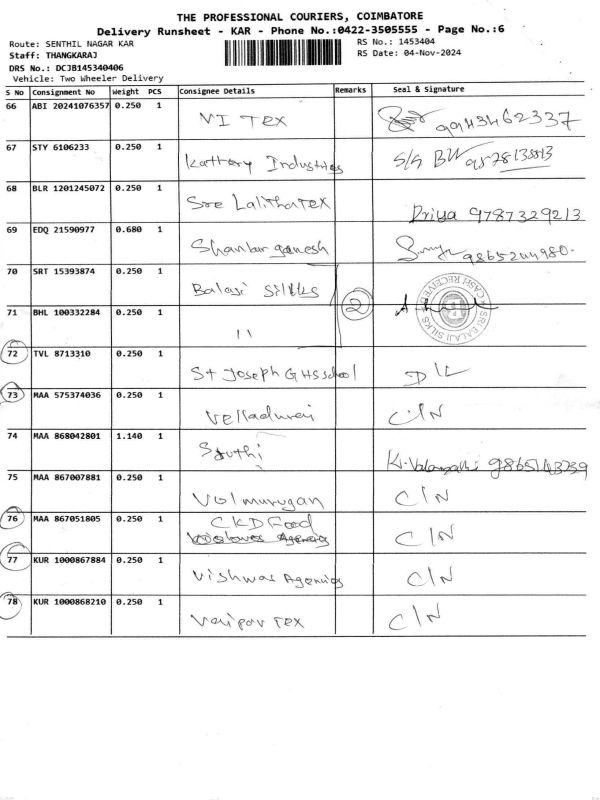 THE PROFESSIONAL COURIERS, COIMBATORE
Delivery Runsheet - KAR - Phone No.:0422-3505555 - Page No.:6
Route: SENTHIL NAGAR KAR
RS No.: 1453404
Staff: THANGKARAJ
RS Date: 04-Nov-2024
DRS No.: DCJB145340406
Vehicle: Two Wheeler Delivery
S No Consignment No Weight PCS Consignee Details Remarks Seal & Signature
66 ABI 20241076357 0.250 1 VI TEX 9943462337
67 STY 6106233 0.250 1 Kathery Industries S/S
68 BLR 1201245072 0.250 1 Sree LalithaTEX Priya 9787329213
69 EDQ 21590977 0.680 1 ganesh
70 SRT 15393874 0.250 1 Balaji Silkks
2
SRI BALAJI SILKS
CASH RECEIVED
71 BHL 100332284 0.250 1 11
72 TVL 8713310 0.250 1 St Joseph GHSschool D/L
73 MAA 575374036 0.250 1 Velladurai C/N
74 MAA 868042801 1.140 1
75 MAA 867007881 0.250 1 Volmurugan C/N
76 MAA 867051805 0.250 1 CKD Food C/N
77 KUR 1000867884 0.250 1 Vishwas Agencies C/N
78 KUR 1000868210 0.250 1 Tex C/N